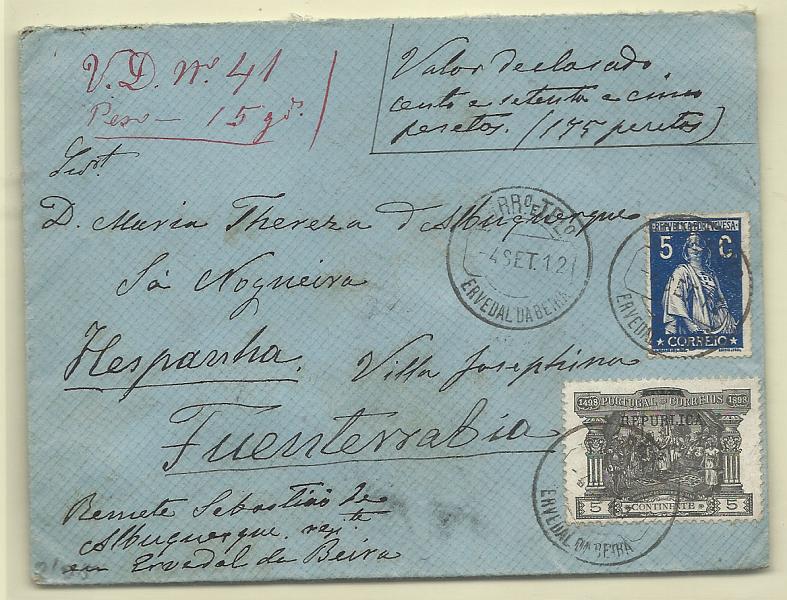 V. D. Nº 41
Peso — 15 grs.
Valor declarado
cento e setenta e cinco
pesetas. (175 pesetas)
D. Maria Thereza d'Albuquerque
Sá Nogueira
Hespanha. Villa Josephina
Fuenterrabia
Remete Sebastião de
Albuquerque reste
em Ervedal da Beira
CORRO E TELO
4 SET. 12
ERVEDAL DA BEIRA
REPUBLICA PORTUGUESA
5 C.
CORREIO
ERVEDAL
1498 PORTUGAL - CORREIOS 1898
REPUBLICA
5 CONTINENTE 5
ERVEDAL DA BEIRA